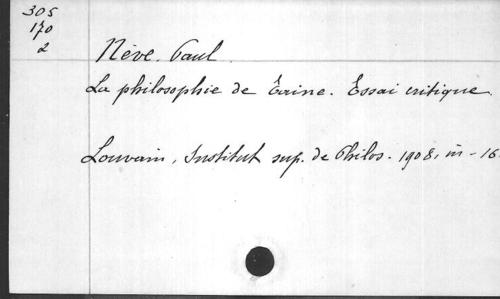 305
170
2
Nève, Paul
La philosophie de Taine. Essai critique
Louvain, Institut sup. de Philos. 1908, in-16